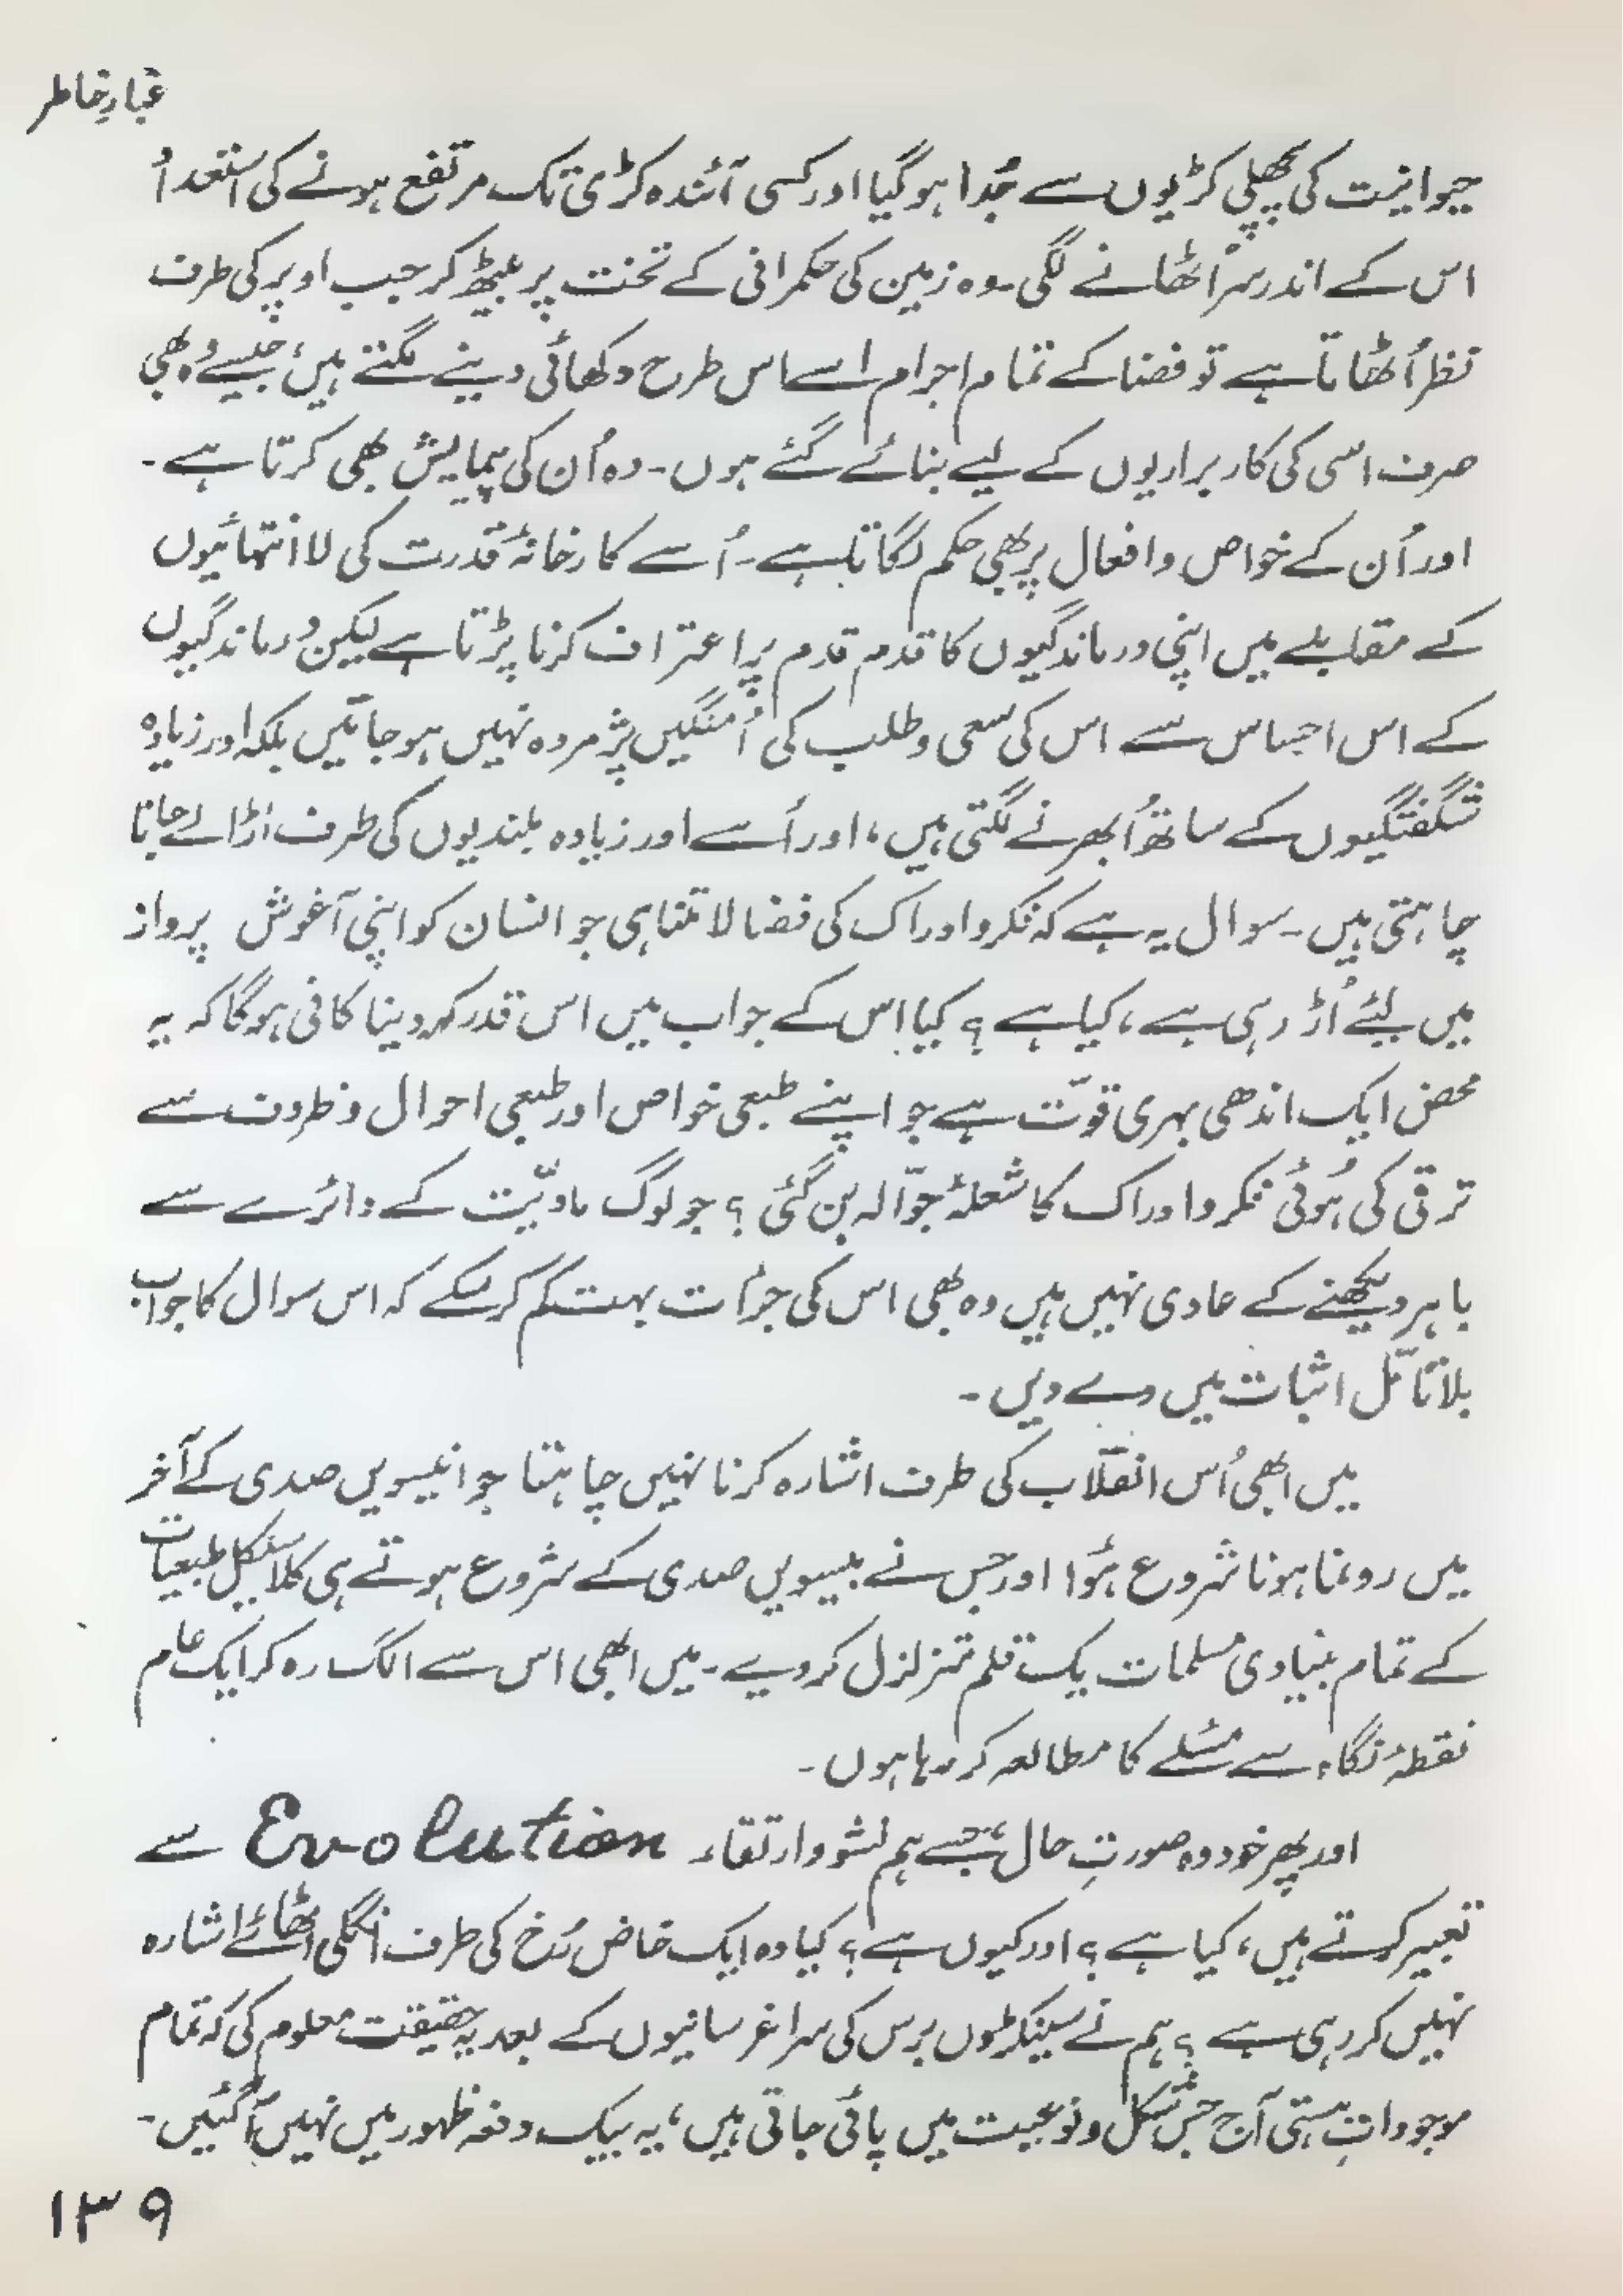 غبارِ خاطر
حیوانیت کی پچھلی کڑیوں سے جُدا ہوگیا اور کسی آئندہ کڑی تک مرتفع ہونے کی استعداُ
اس کے اندر سر اُٹھانے لگی۔ وہ زمین کی حکمرانی کے تخت پر بیٹھ کر جب اوپر کی طرف
نظر اُٹھاتا ہے تو فضا کے تمام اجرام اسے اس طرح دکھائی دینے لگتے ہیں، جیسے وُہ بھی
صرف اسی کی کاربراریوں کے لیے بنائے گئے ہوں۔ وہ اُن کی پیمایش بھی کرتا ہے۔
اور اُن کے خواص و افعال پر بھی حکم لگاتا ہے۔ اُسے کارخانۂ قدرت کی لاانتہائیوں
کے مقابلے میں اپنی درماندگیوں کا قدم قدم پر اعتراف کرنا پڑتا ہے لیکن درماندگیوں
کے اس احساس سے اس کی سعی و طلب کی اُمنگیں پژمردہ نہیں ہوجاتیں بلکہ اور زیادہ
شگفتگیوں کے ساتھ اُبھرنے لگتی ہیں، اور اُسے اور زیادہ بلندیوں کی طرف اڑا لے جانا
چاہتی ہیں۔ سوال یہ ہے کہ فکر و ادراک کی فضا لاتناہی جو انسان کو اپنی آغوش پرواز
میں لیے اُڑ رہی ہے، کیا ہے ؟ کیا اِس کے جواب میں اس قدر کہہ دینا کافی ہوگا کہ یہ
محض ایک اندھی بہری قوّت ہے جو اپنے طبعی خواص اور طبعی احوال و ظروف سے
ترقی کی ہُوئی فکر و ادراک کا شعلۂ جوّالہ بن گئی ؟ جو لوگ مادیّت کے دائرے سے
باہر دیکھنے کے عادی نہیں ہیں وہ بھی اس کی جرأت بہت کم کرسکے کہ اس سوال کا جواب
بلا تامّل اثبات میں دے دیں۔
میں ابھی اُس انقلاب کی طرف اشارہ کرنا نہیں چاہتا جو انیسویں صدی کے آخر
میں رونما ہونا شروع ہُوا اور جس نے بیسویں صدی کے شروع ہوتے ہی کلاسیکل طبیعیات
کے تمام بنیادی مسلمات یک قلم متزلزل کردیے۔ میں ابھی اس سے الگ رہ کر ایک عام
نقطۂ نگاہ سے مسئلے کا مطالعہ کر رہا ہوں۔
اور پھر خود وہ صورتِ حال، جسے ہم نشو و ارتقاء Evolution سے
تعبیر کرتے ہیں، کیا ہے ؟ اور کیوں ہے ؟ کیا وہ ایک خاص رُخ کی طرف انگلی اٹھائے اشارہ
نہیں کر رہی ہے ؟ ہم نے سینکڑوں برس کی سراغرسانیوں کے بعد یہ حقیقت معلوم کی کہ تمام
موجوداتِ ہستی آج جس شکل و نوعیت میں پائی جاتی ہیں، یہ بیک دفعہ ظہور میں نہیں آگئیں۔
۱۳۹